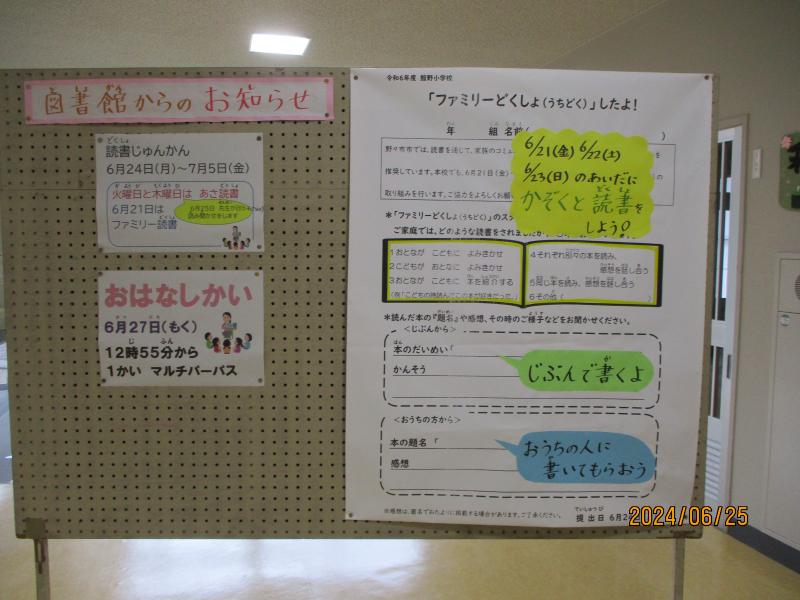 図書館からの お知らせ
読書じゅんかん
6月24日(月)～7月5日(金)
火曜日と木曜日は あさ読書
6月21日は
ファミリー読書
6月25日 先生が
読み聞かせをします
おはなしかい
6月27日(もく)
12時55分から
1かい マルチパーパス
令和6年度 館野小学校
「ファミリーどくしょ(うちどく)」したよ!
年 組 名前( )
野々市市では、読書を通じて、家族のコミュ
推奨しています。本校でも、6月21日(金)~
の
取り組みを行います。ご協力をよろしくお願い
6/21(金) 6/22(土)
6/23(日) のあいだに
かぞくと読書を
しよう!
*「ファミリーどくしょ(うちどく)」のス
ご家庭では、どのような読書をされましたか
1おとなが こどもに よみきかせ
2こどもが おとなに よみきかせ
3おとなが こどもに 本を紹介する
4それぞれ別々の本を読み、
感想を話し合う
5同じ本を読み、感想を話し合う
6その他( )
*読んだ本の『題名』や感想、その時のご様子などをお聞かせください。
<じぶんから>
本のだいめい「
かんそう
じぶんで書くよ
<おうちの方から>
本の題名「
感想
おうちの人に
書いてもらおう
※感想は、匿名でおたよりに掲載する場合があります。ご了承ください。
提出日 6月2
2024/06/25